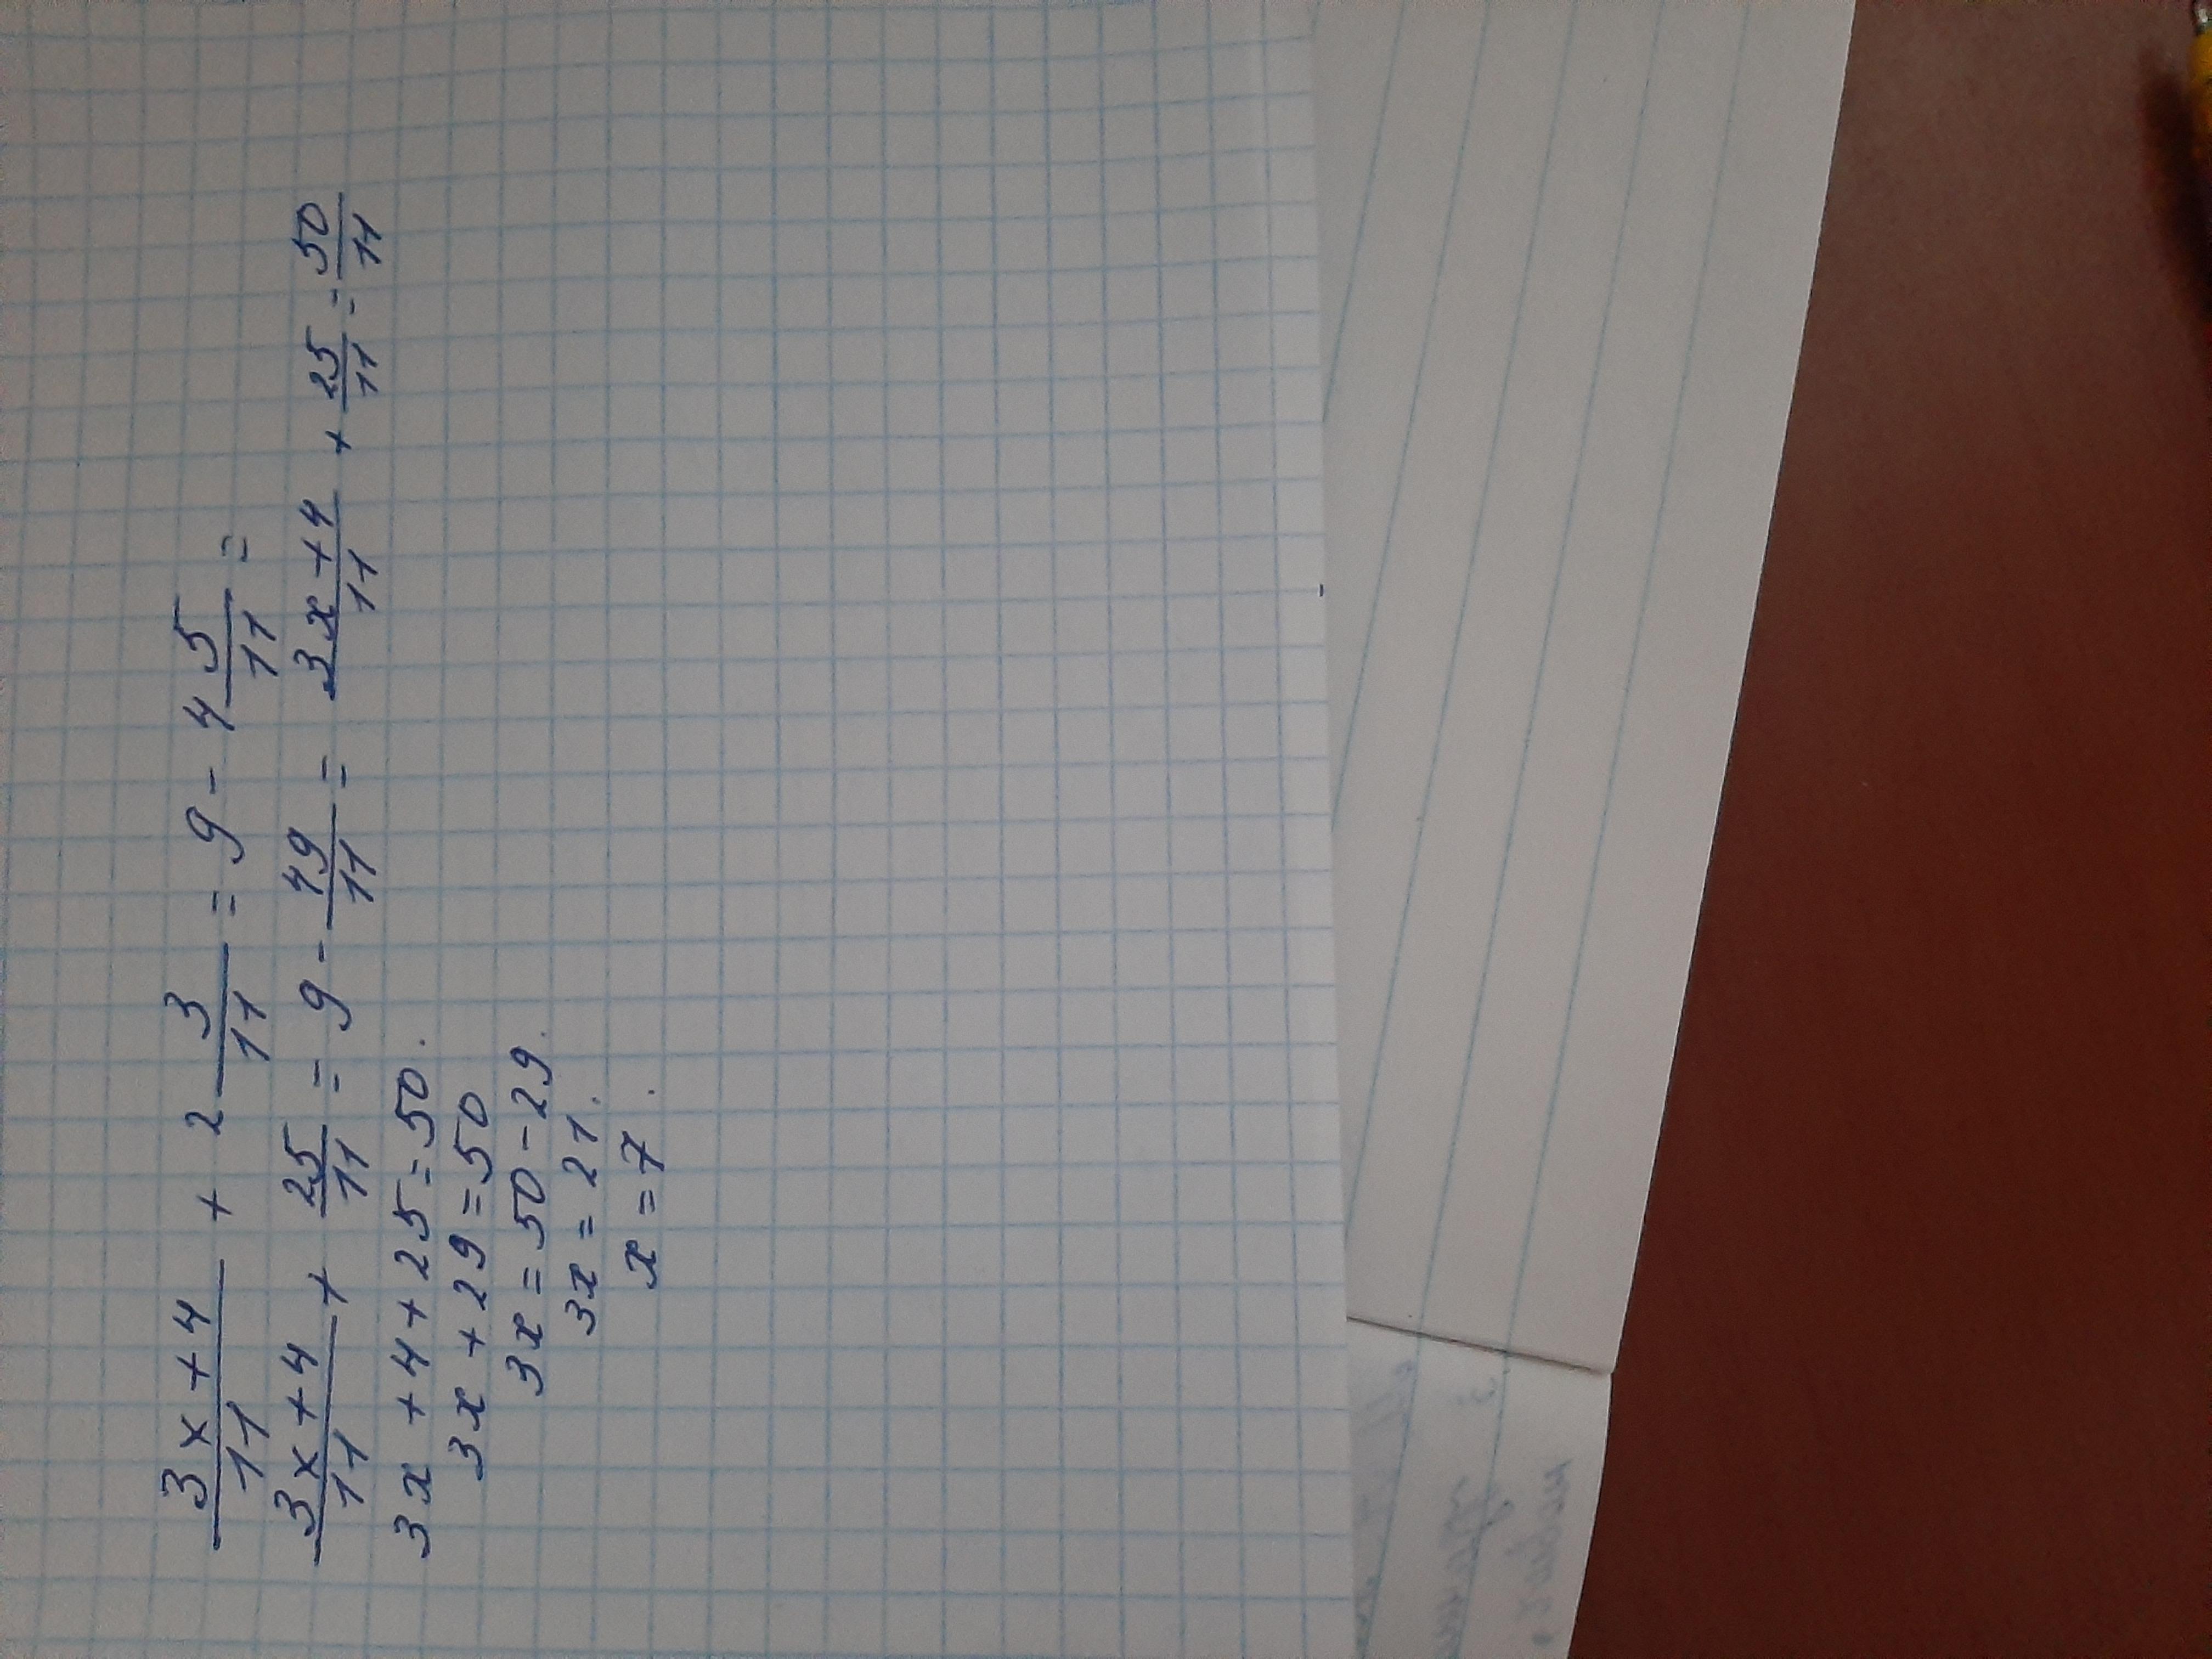 (3x+4)/11 + 2 3/11 = 9 - 4 5/11 =
(3x+4)/11 + 25/11 = 9 - 49/11 = (3x+4)/11 + 25/11 = 50/11
3x + 4 + 25 = 50.
3x + 29 = 50
3x = 50 - 29.
3x = 21.
x = 7.